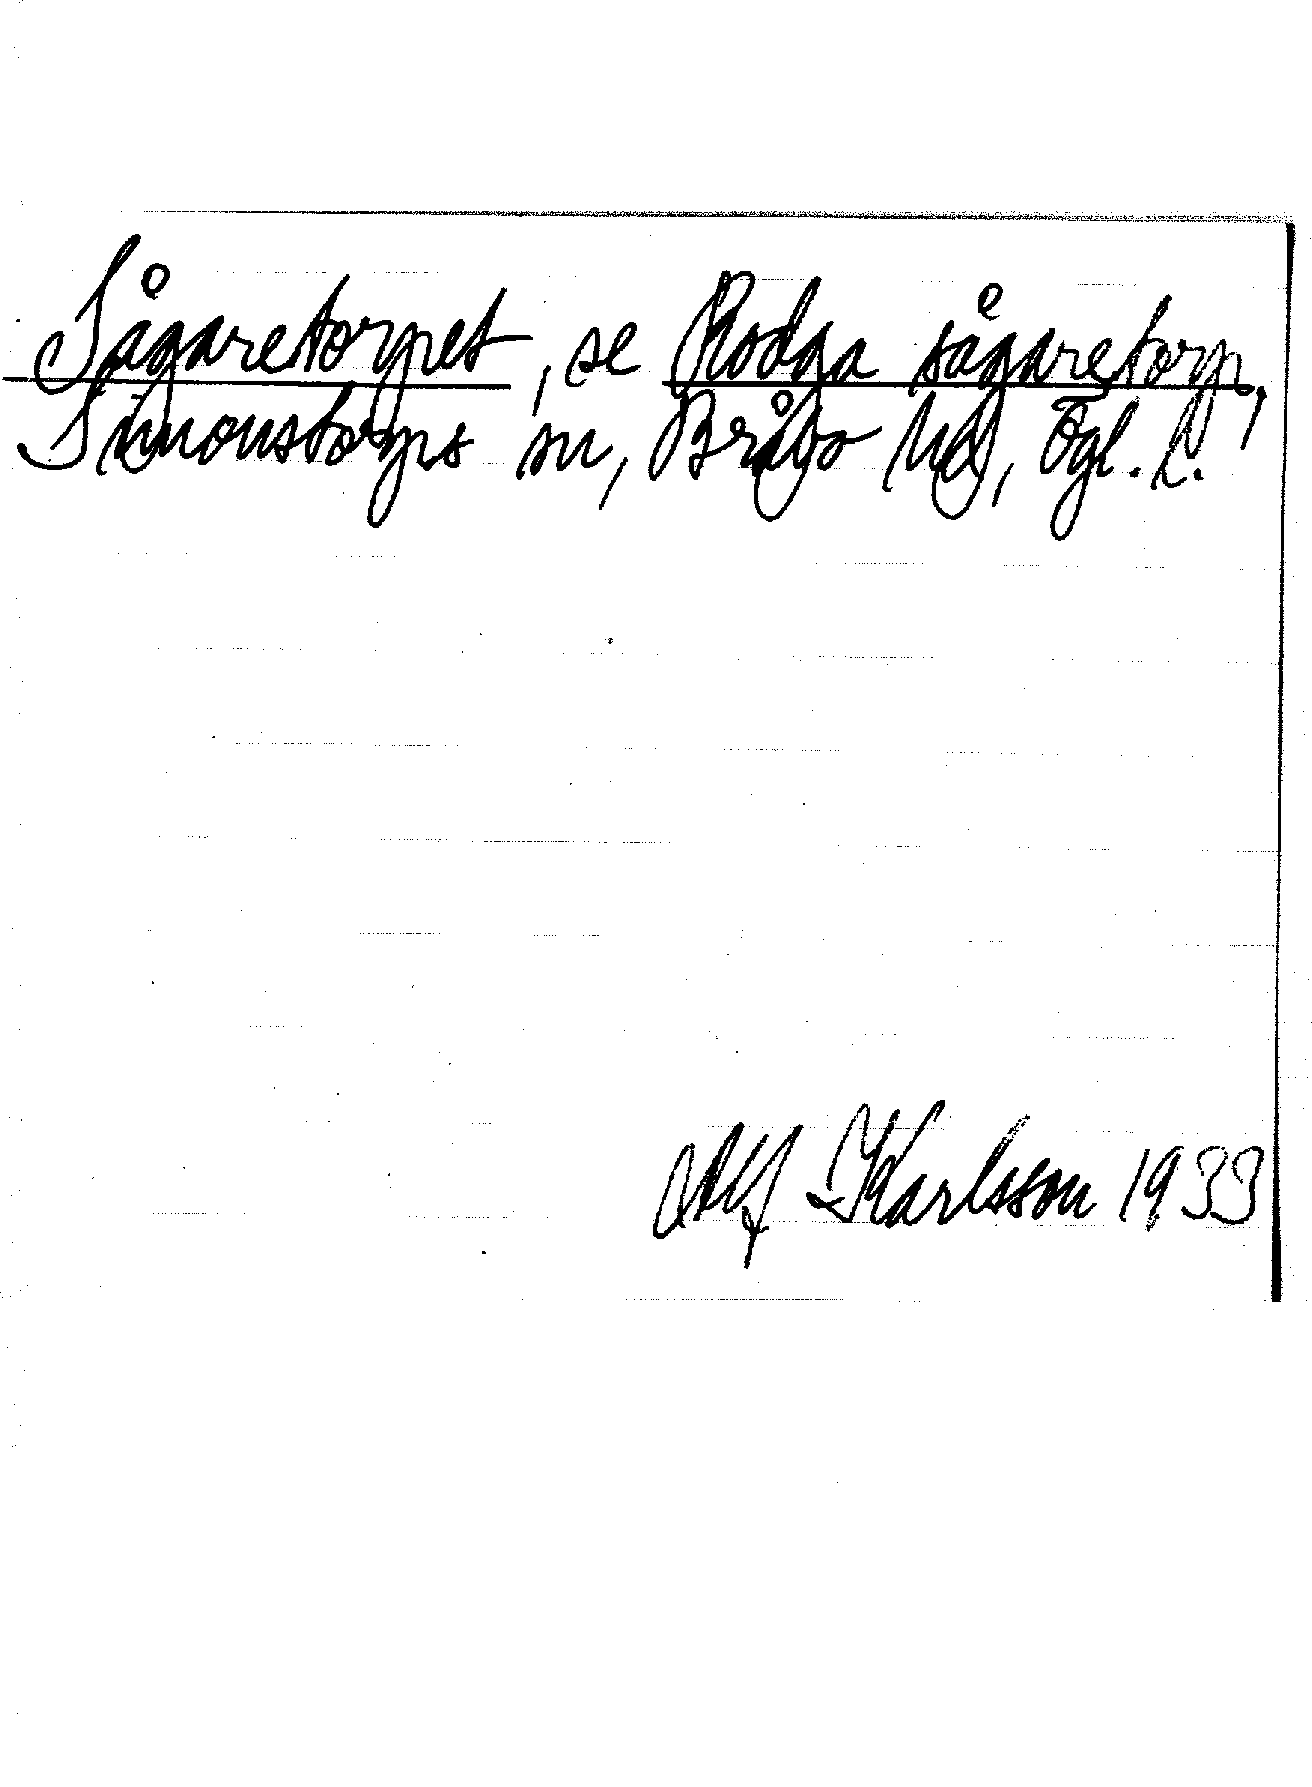 Sågaretorpet, se Rodga sågaretorp,
Simonstorps sn, Bråbo hd, Ögl. l.
Alf Karlsson 1933